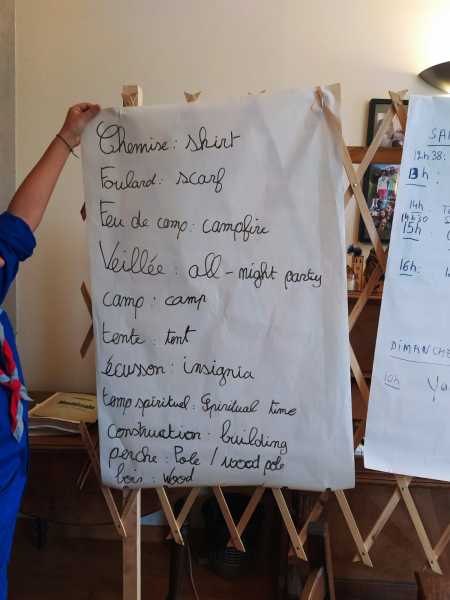 Chemise : shirt
Foulard : scarf
Feu de camp : campfire
Veillée : all-night party
camp : camp
tente : tent
écusson : insignia
temp spirituel : Spiritual time
construction : building
perche : Pole / wood pole
bois : wood
12h38 :
14h
14h30
15h
16h :
DIMANCHE
10h